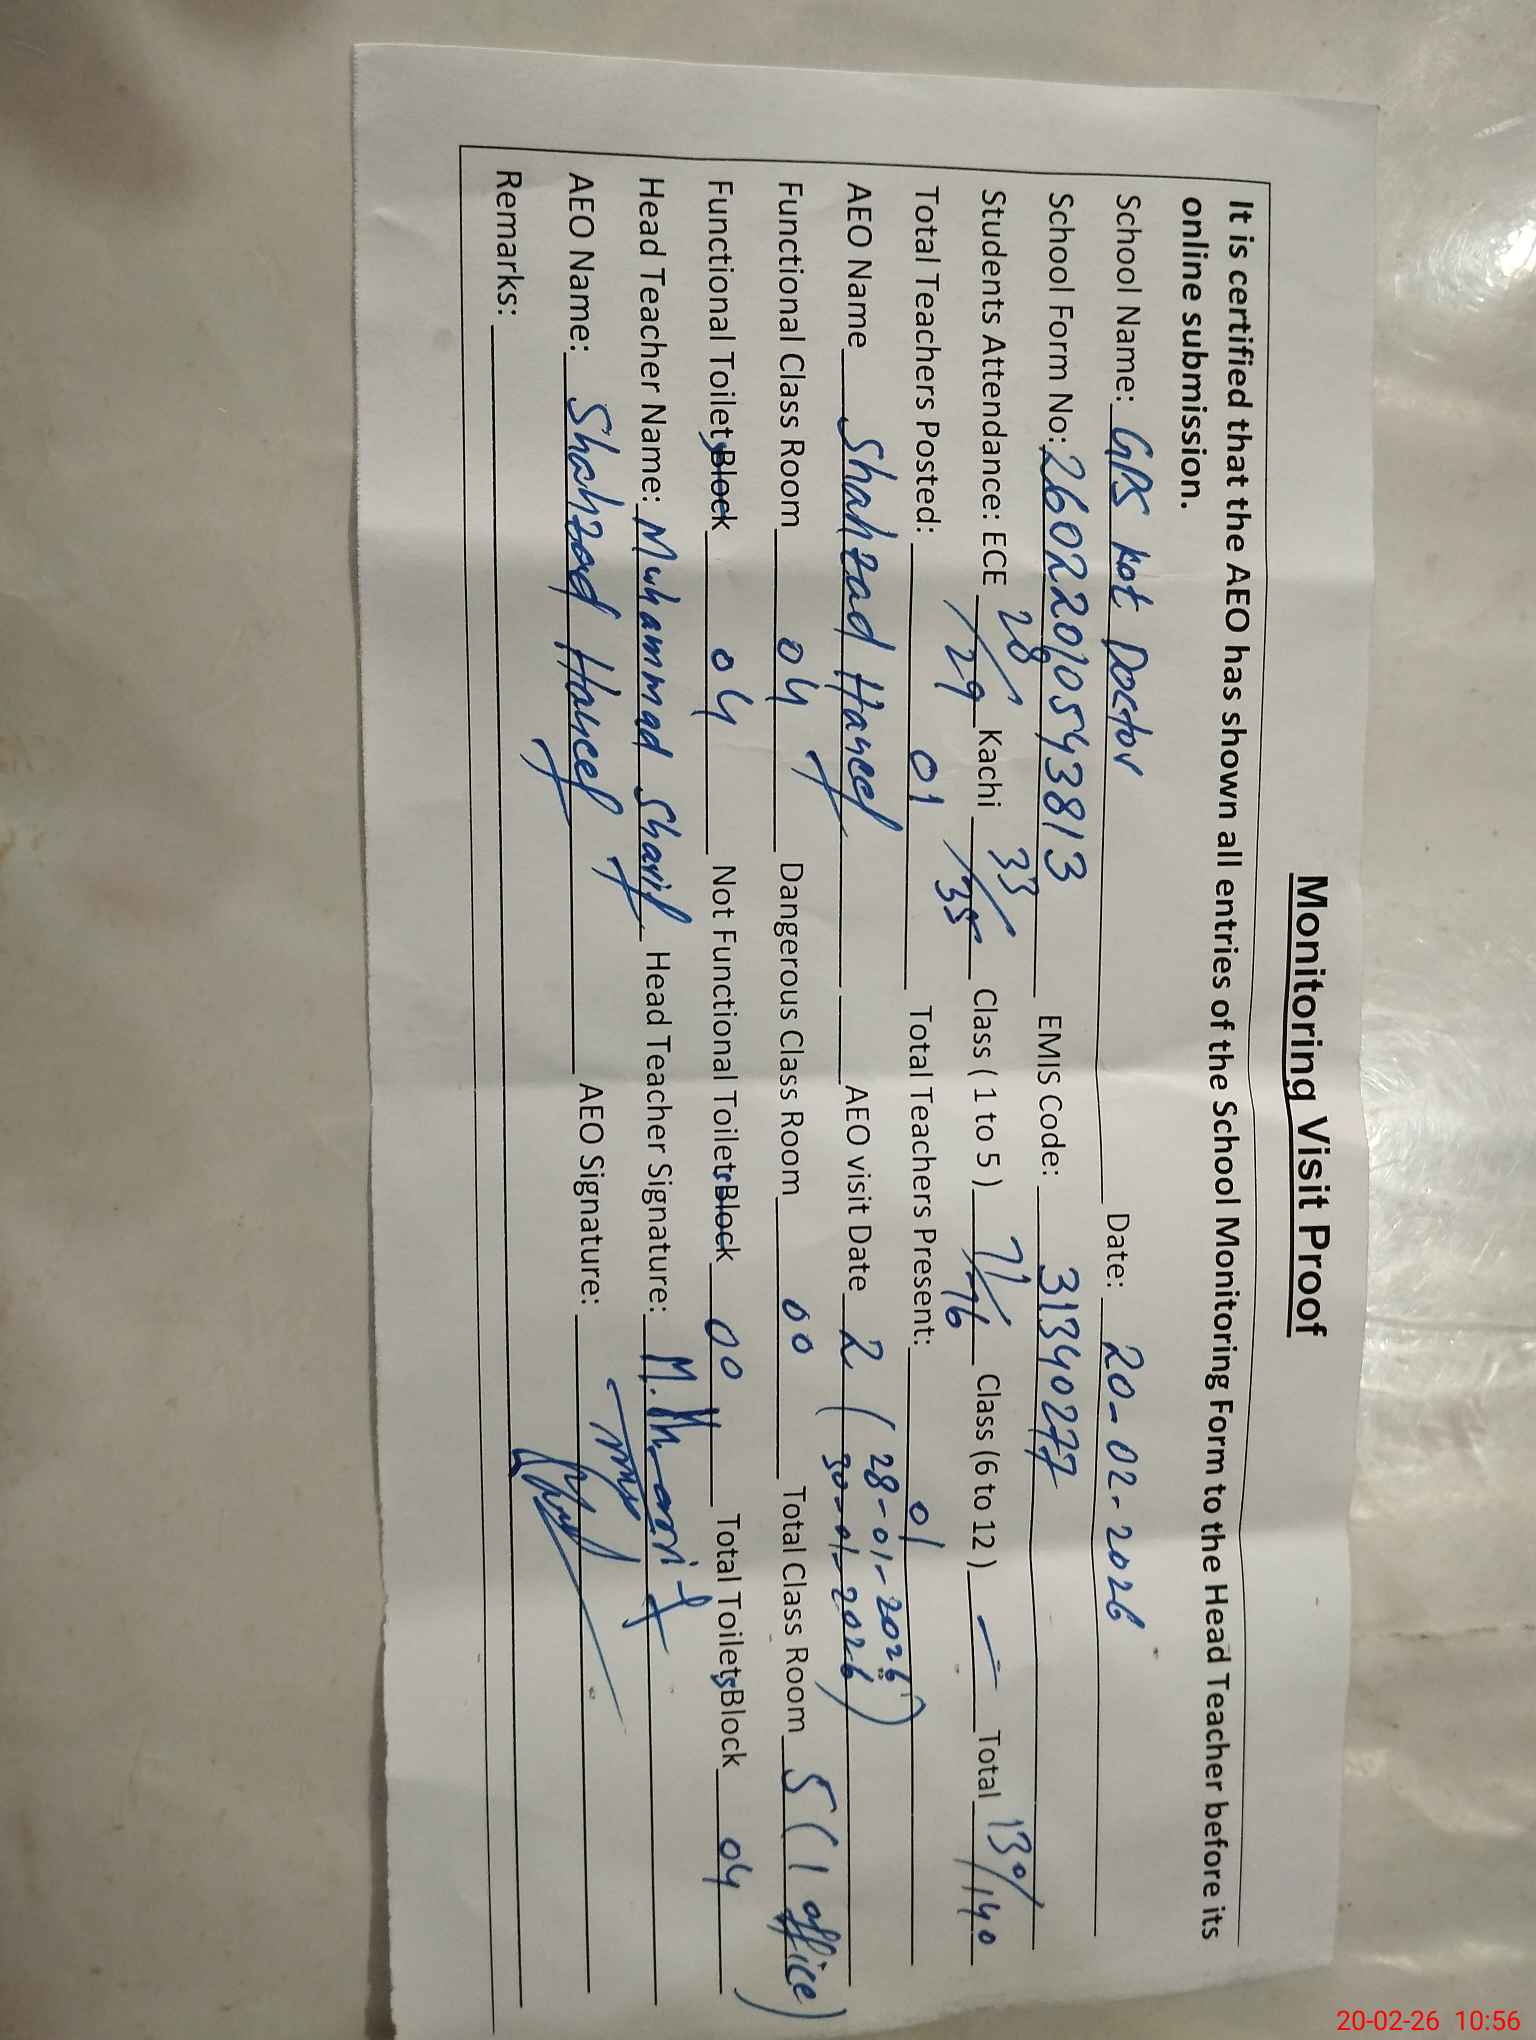 Monitoring Visit Proof
It is certified that the AEO has shown all entries of the School Monitoring Form to the Head Teacher before its
online submission.
School Name: GPS Kot Doctor Date: 20-02-2026
School Form No: 2602201054 38813 EMIS Code: 31340277
Students Attendance: ECE 28/29 Kachi 33/35 Class ( 1 to 5 ) 71/76 Class (6 to 12 ) — Total 130/140
Total Teachers Posted: 01 Total Teachers Present: 01
AEO Name Shahzad Haneef AEO visit Date 2 ( 28-01-2026
30-01-2026 )
Functional Class Room 04 Dangerous Class Room 00 Total Class Room 5 ( 1 office )
Functional Toilets Block 04 Not Functional Toilets Block 00 Total Toilets Block 04
Head Teacher Name: Muhammad Sharif Head Teacher Signature:
AEO Name: Shahzad Haneef AEO Signature:
Remarks:
20-02-26 10:56